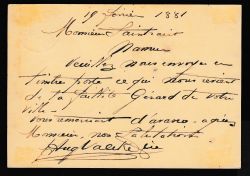 19 février 1881
Monsieur Saintraint
Namur
Veuillez nous envoyer en
timbre poste ce qui nous revient
de la faillite Gérard de votre
ville.
Vous remerciant d'avance, agréez
Monsieur, nos Salutations.